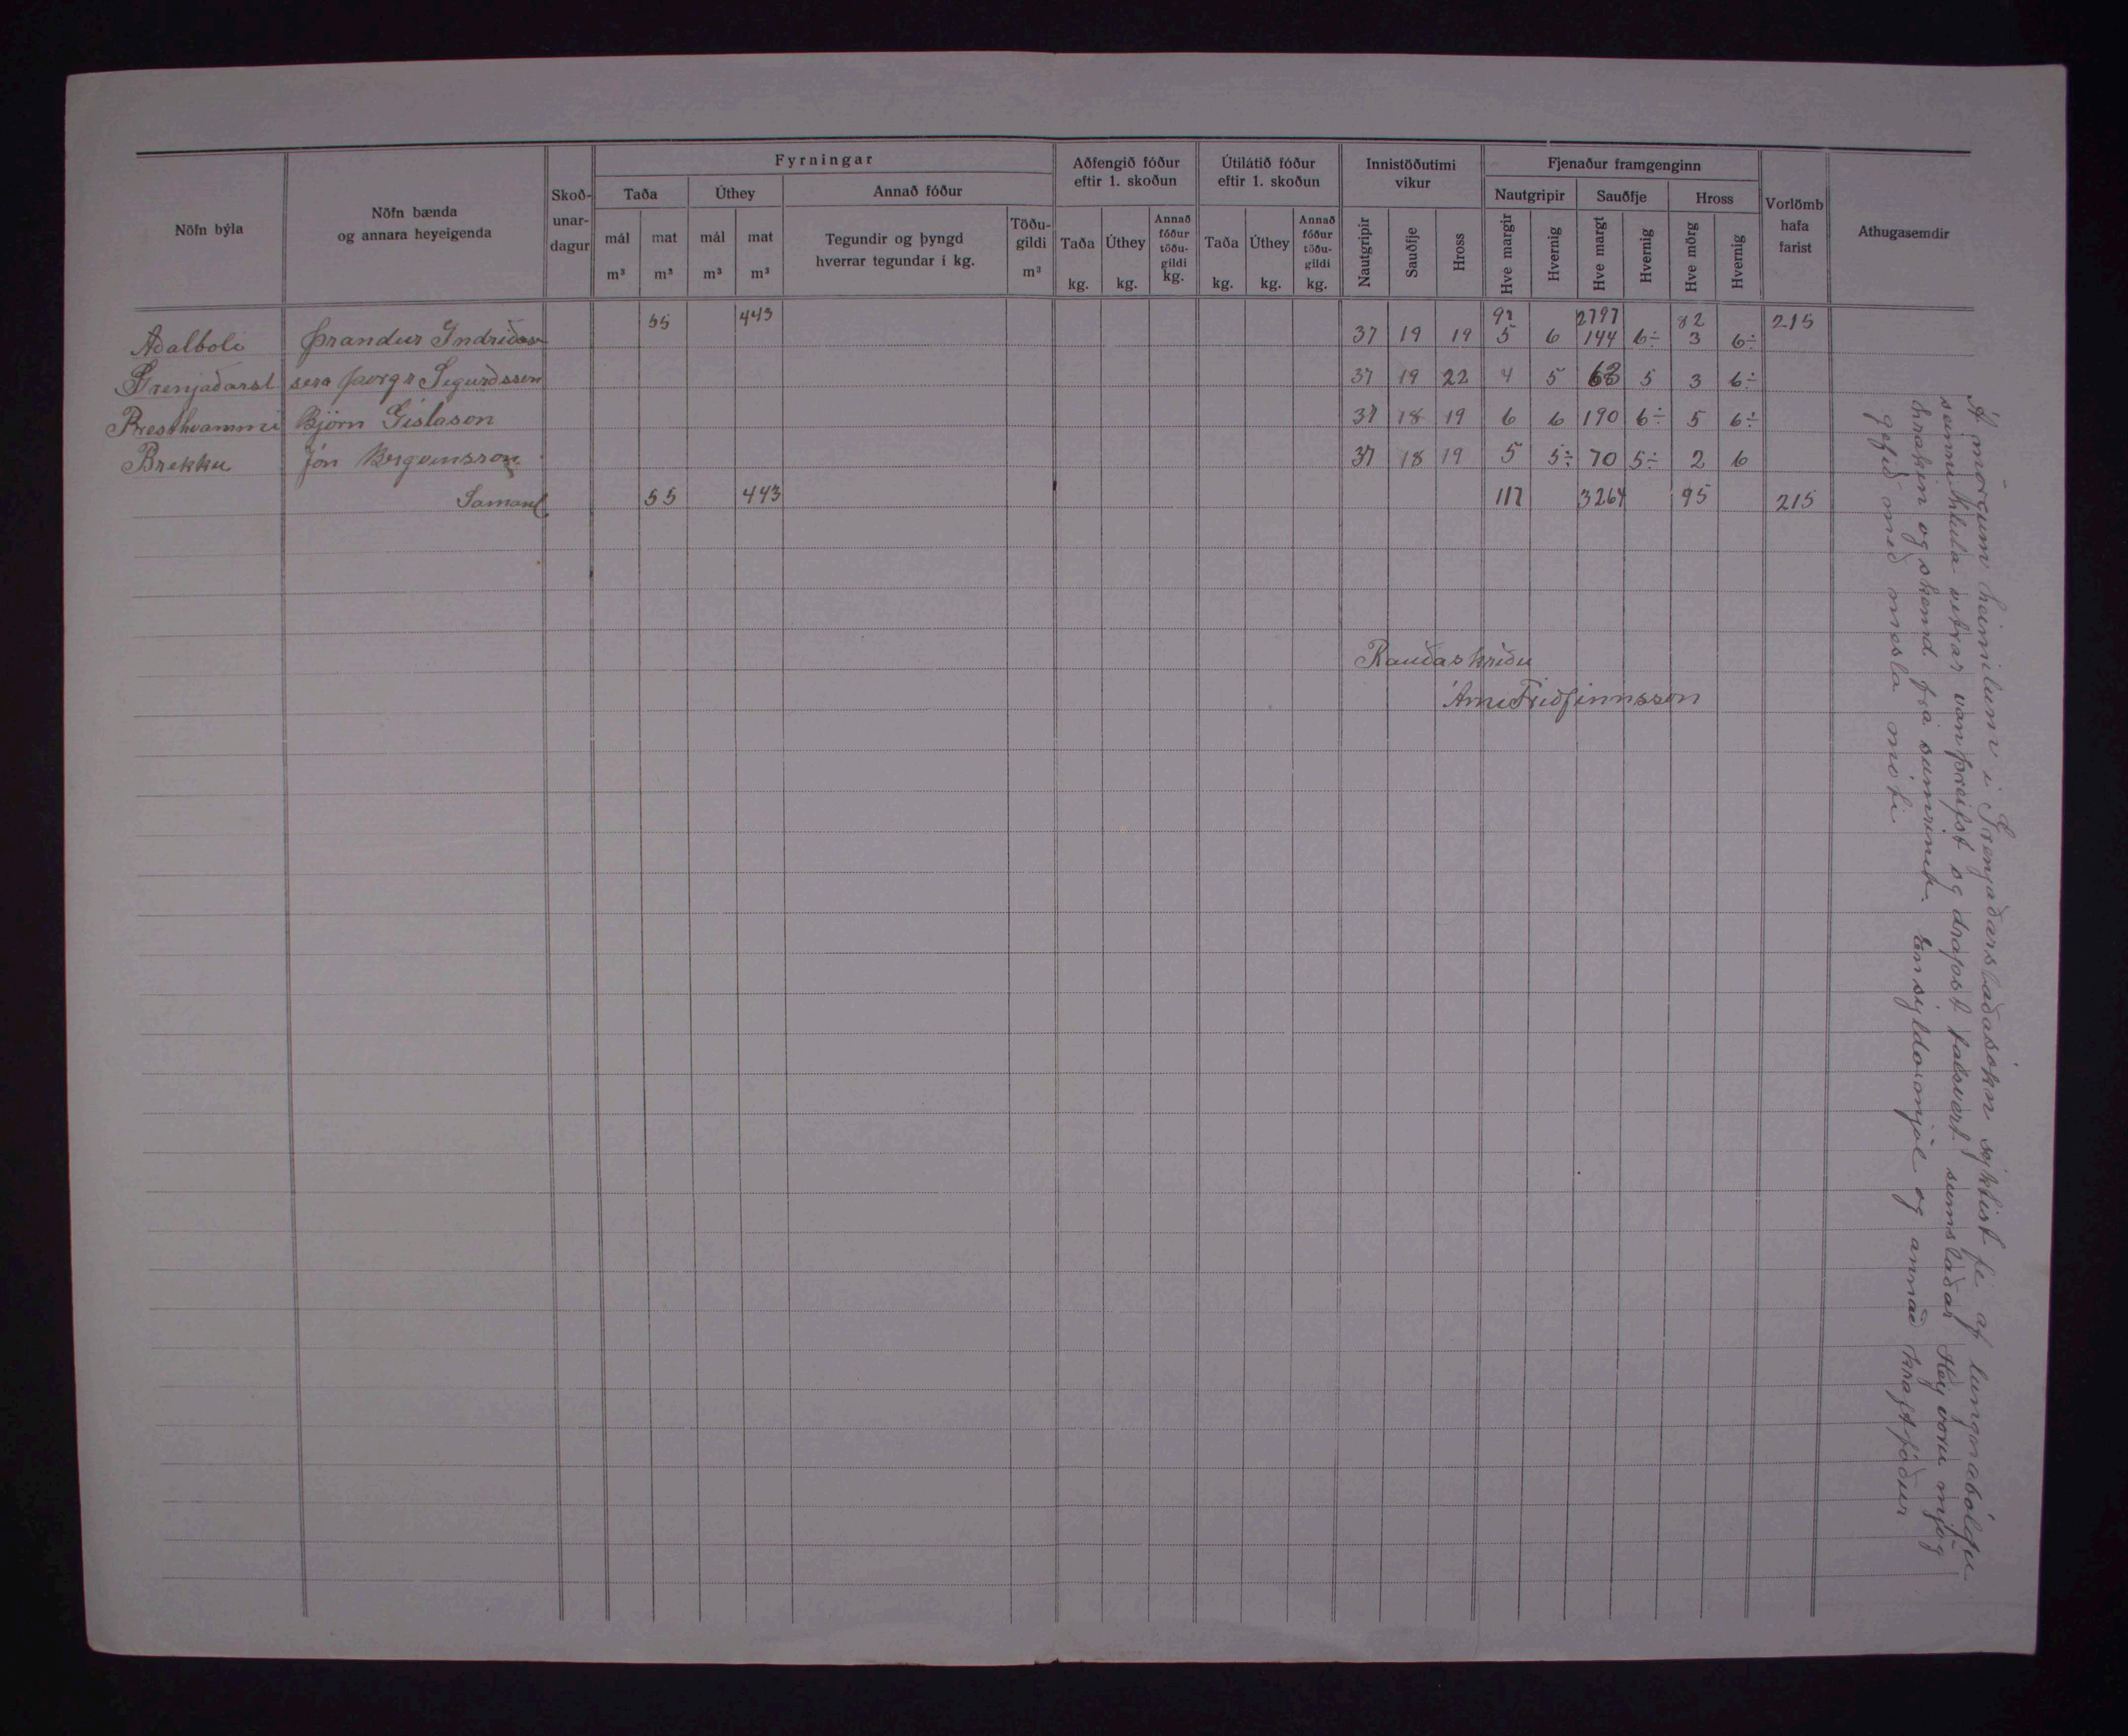 Fyrningar
Aðfengið fóður eftir 1. skoðun
Útilátið fóður eftir 1. skoðun
Innistöðutimi vikur
Fjenaður framgenginn
Nöfn býla
Nöfn bænda og annara heyeigenda
Skoð-unar-dagur
Taða
Úthey
Annað fóður
Nautgripir
Sauðfje
Hross
Vorlömb hafa farist
Athugasemdir
mál m³
mat m³
mál m³
mat m³
Tegundir og þyngd hverrar tegundar í kg.
Töðu-gildi m³
Taða kg.
Úthey kg.
Annað fóður töðu-gildi kg.
Taða kg.
Úthey kg.
Annað fóður töðu-gildi kg.
Nautgripir
Sauðfje
Hross
Hve margir
Hvernig
Hve margt
Hvernig
Hve mörg
Hvernig
55 443 92 2797 82 215
Aðalboli Þrandur Indriðason 37 19 19 5 6 144 6÷ 3 6÷
Grenjaðarst sera Þorgr Sigurðsson 37 19 22 4 5 63 5 3 6÷
Presthvammi Björn Gíslason 37 18 19 6 6 190 6÷ 5 6÷
Brekku Jón Bergvinsson 37 18 19 5 5÷ 70 5÷ 2 6
Samant 55 443 112 3264 95 215
Rauðaskriðu
Árni Friðfinnsson
Á mörgum heimilum i Grenjaðarstaðasókn sýktist fé af lungnabólgu
seinni hluta vetrar vanþreifst og drapst talsvert sumstaðar Hey voru mjög
hrakin og skemd frá sumrinu en síldarmjöl og annað kraftfóður
gefið með mesta móti